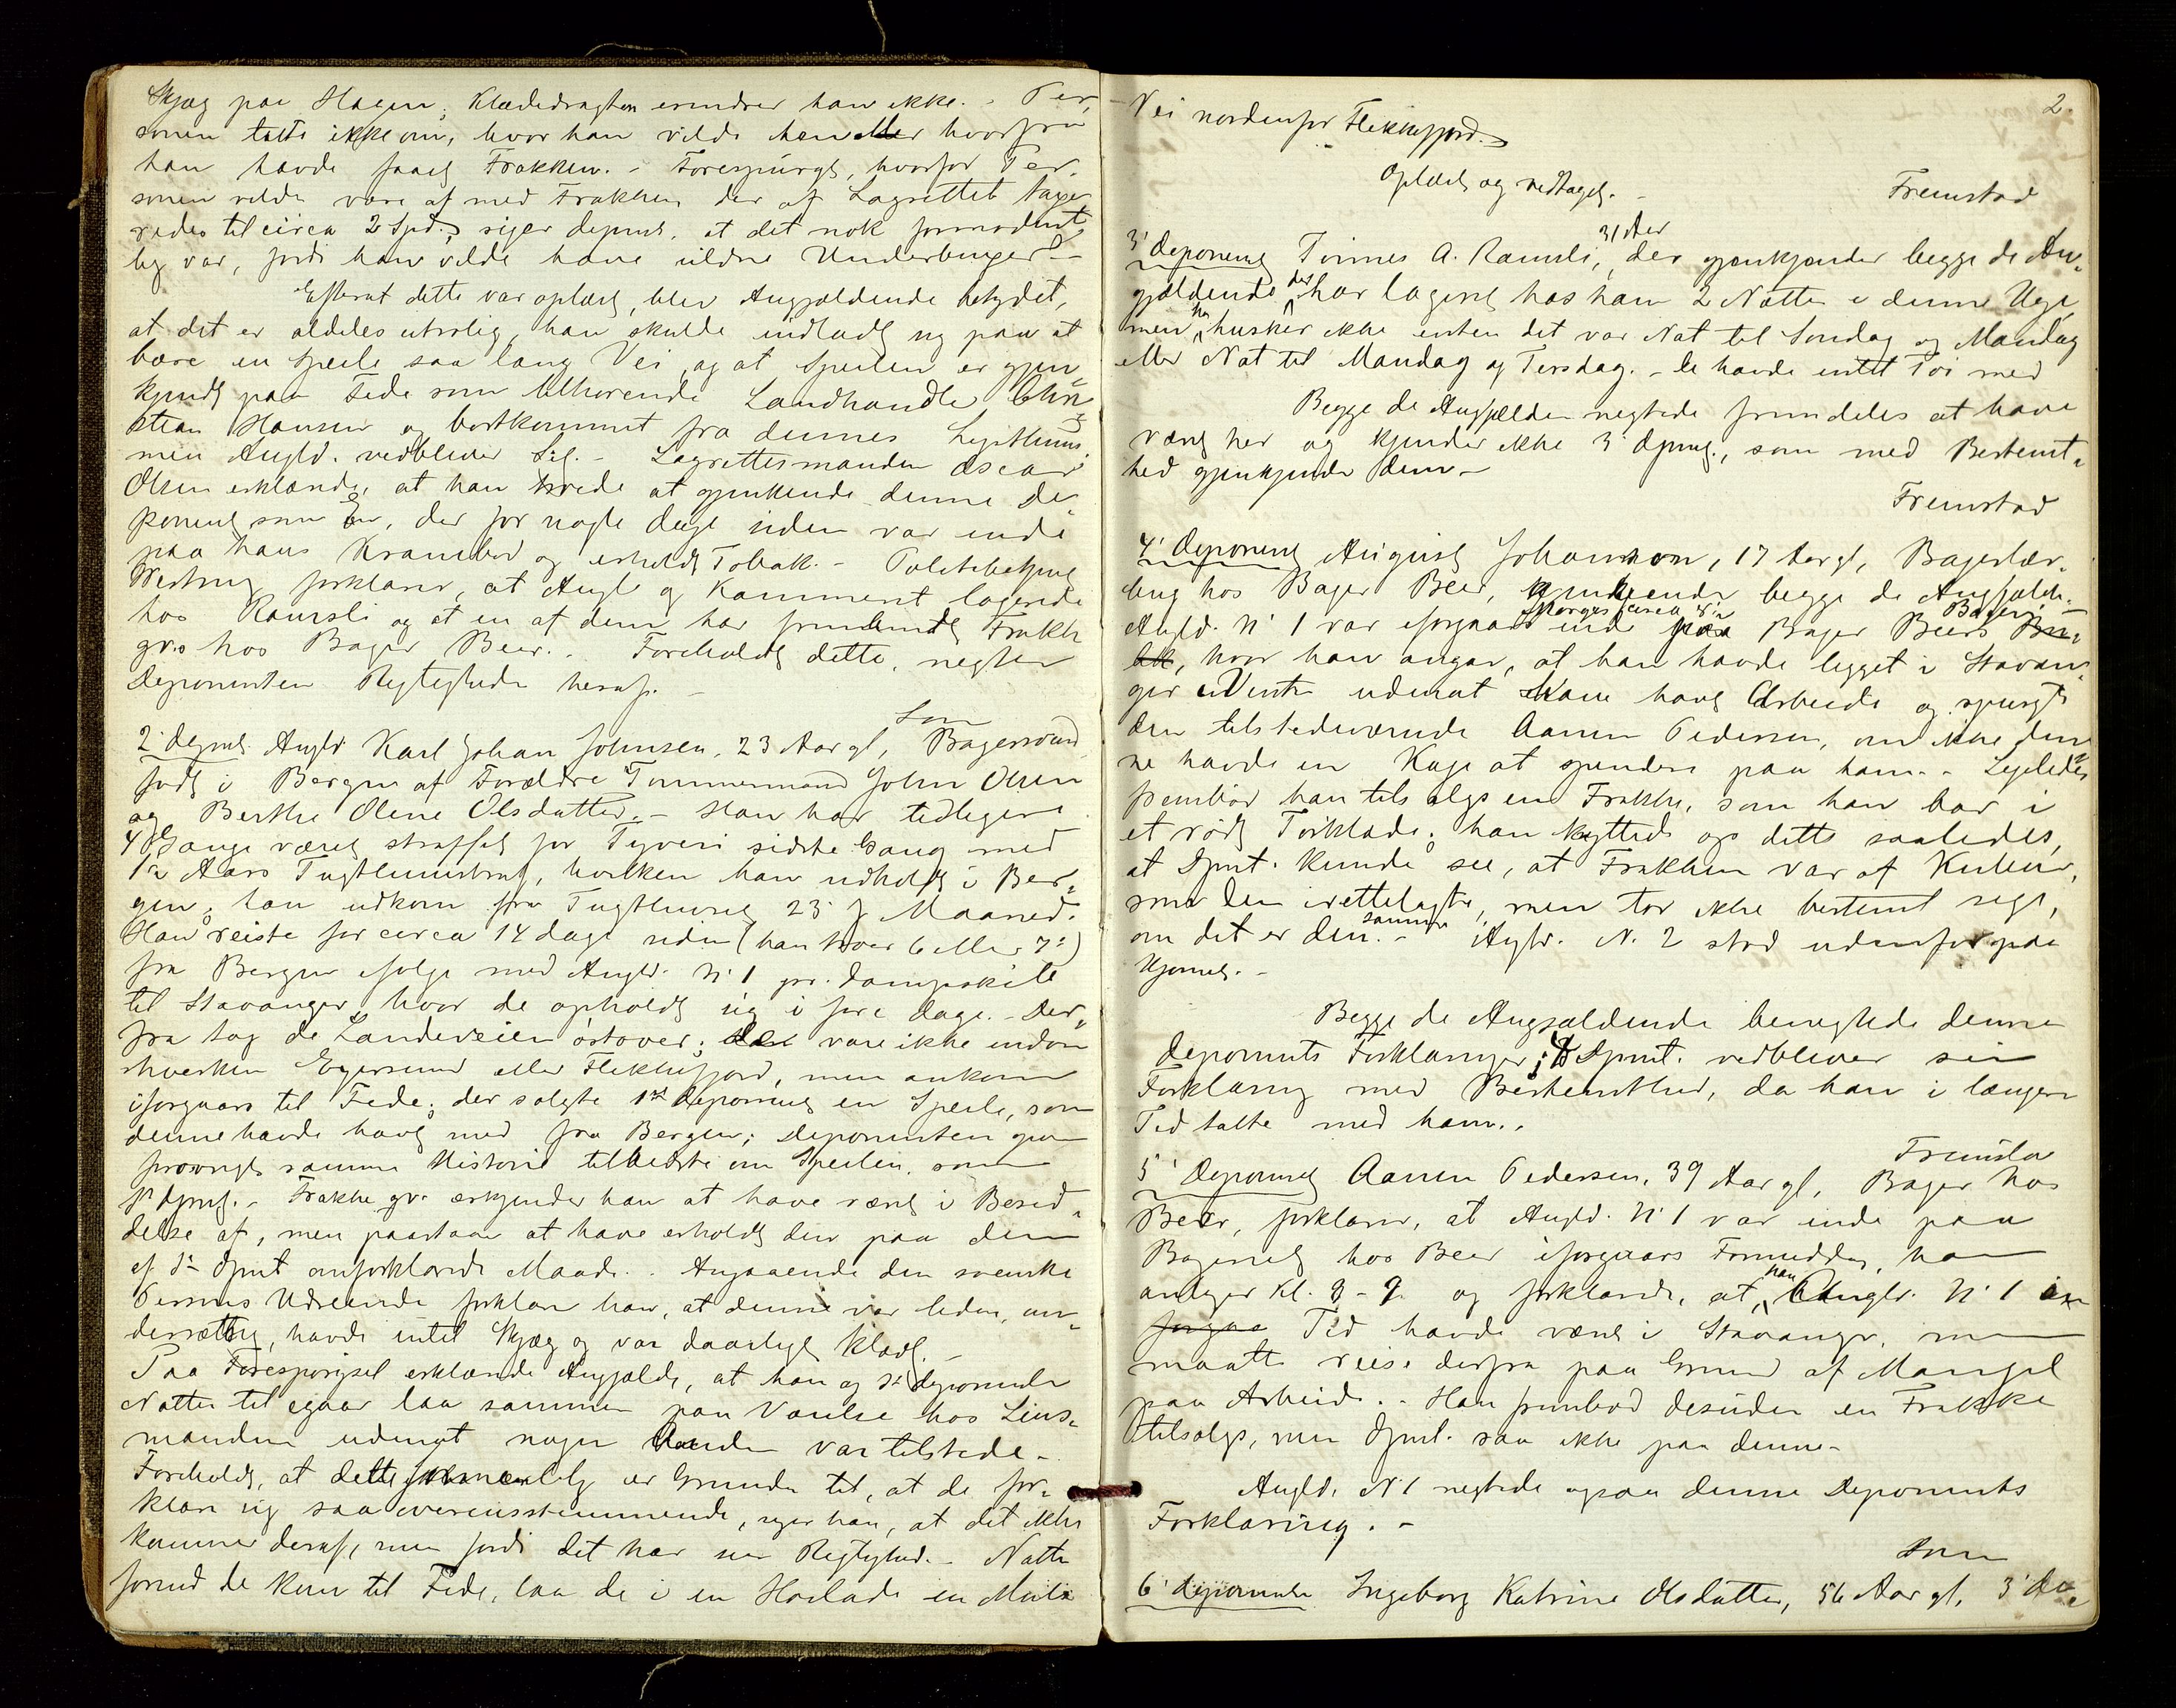 Skjæg paa Hagen; Klædedragten erindrer han ikke. - Per-
sonen talte ikke om, hvor han vilde hen eller hvorfra
han havde faaet Frakken. - Forespurgt, hvorfor Per-
sonen vilde være af med Frakken der af Lagrettet taxe-
redes til circa 2 Spd., siger depnt. at det nok formodent-
lig var, fordi han vilde have uldne Underbuxer -
Efterat dette var oplæst, blev Angjældende betydet,
at det er aldeles utrolig, han skulde indladt sig paa at
bære en Speile saa lang Vei, og at Speilen er gjen-
kjendt paa Fede som tilhørende Landhandler Chri-
stian Hansen og bortkommet fra dennes
men Angld. vedbliver Sit. - Lagrettesmanden Oscar
Olsen erklærede, at han troede at gjenkjende denne De-
ponent som En, der for nogle dage siden var inde
paa hans Krambod og erholdt Tobak. - Politibetjent
forklarer, at Angl. og Kammerat logerede
hos Ramsli og at en af dem har frembudt Frakke
gr. hos Bager Beer. - Foreholdt dette, negter
Deponenten Rigtigheden heraf. -
Som
2' depnt. Angld. Karl Johan Johnsen, 23 Aar gl, Bagersvend
født i Bergen af Forældre Tømmermand John Olsen
og Berthe Oline Olsdatter. - Han har tidligere
4 Gange været straffet for Tyveri sidste Gang med
Aars Tugthuusstraf, hvilken han udholdt i Ber-
gen; han udkom fra Tugthuset 23' f. Maaned.
Han reiste for circa 14 dage siden (han tror 6 eller 7')
fra Bergen ifølge med Angld. N' 1 pr. Dampskib
til Stavanger, hvor de opholdt sig i fire dage. - Der-
fra tog de Landeveien østover; de vare ikke indom
hverken Egersund eller Flekkefjord, men ankom
iforgaars til Fede; der solgte 1ste deponent en Speile, som
denne havde havt med fra Bergen; Deponenten gjen
samme Historie tilbedste om Speilen, som
1' dpnt. - Frakke gr. erkjender han at have været i Besid-
delse af, men paastaar at have erholdt den paa den
af 1' dpnt omforklarede Maade. - Angaaende den svenske
Persons Udseende forklarer han, at denne var liden, un-
dersætsig, havde intet Skjæg og var daarligt klædt. -
Paa Forespørgsel erklærede Angjældte, at han og 1' deponent
Natten til igaar laa sammen paa Værelse hos Lens-
manden uden at nogen Anden var tilstede. -
Foreholdt, at dette formentlig er Grunden til, at de for-
klare sig saa overensstemmende, siger han, at det ikke
kommer deraf, men fordi det har sin Rigtighed. - Natten
forud de kom til Fede, laa de i en Høelade en Miil
2.
Vei nordenfor Flekkefjord. -
Oplæst og vedtaget. -
Fremstod
31 Aar
3' deponent Tønnes A. Ramsli, der gjenkjender begge de An-
gjældende der har logeret hos ham 2 Nætter i denne Uge,
men han husker ikke enten det var Nat til Søndag og Mandag
eller Nat til Mandag og Tirsdag. - De havde intet Tøi med
Begge de Angjældende negtede fremdeles at have
været her og kjender ikke 3' dpnt., som med Bestemt-
hed gjenkjender dem -
Fremstod
4' deponent August Johannson, 17 Aar gl, Bagerlær-
ling hos Bager Beer, gjenkjender begge de Angjældte.
Morges circa
Angld. N' 1 var iforgaars inde paa Bager Beers Bageri
, hvor han angav, at han havde ligget i Stavan-
ger i Vinter uden at have havt Arbeide og spurgte
den tilstedeværende Aanen Pedersen, om ikke den-
ne havde en Kage at spendere paa ham. - Ligeledes
frembød han tilsalgs en Frakke, som han bar i
et rødt Tørklæde; han knyttede op dette saaledes,
at Dpnt. kunde see, at Frakken var af Kulør,
som den irettelagte, men tør ikke bestemt sige,
om det er den samme. - Angld. N. 2 stod udenfor paa
Hjørnet. -
Begge de Angjældende benegtede denne
deponents Forklaringer; 4' Dpnt. vedbliver sin
Forklaring med Bestemthed, da han i længere
Tid talte med ham. -
Fremstod
5' Deponent Aanen Pedersen, 39 Aar gl, Bager hos
Beer, forklarer, at Angld. N' 1 var inde paa
Bageriet hos Beer iforgaars Formiddag, han
antager Kl. 8 - 9 og forklarede, at han Angld. N' 1 en
Tid havde været i Stavanger, men
maatte reise derfra paa Grund af Mangel
paa Arbeide. - Han frembød desuden en Frakke
tilsalgs, men Dpnt. saa ikke paa denne. -
Angld. N' 1 negtede ogsaa denne Deponents
Forklaring. -
Som
6' deponent Ingeborg Katrine Olsdatter, 56 Aar gl, 3' de-